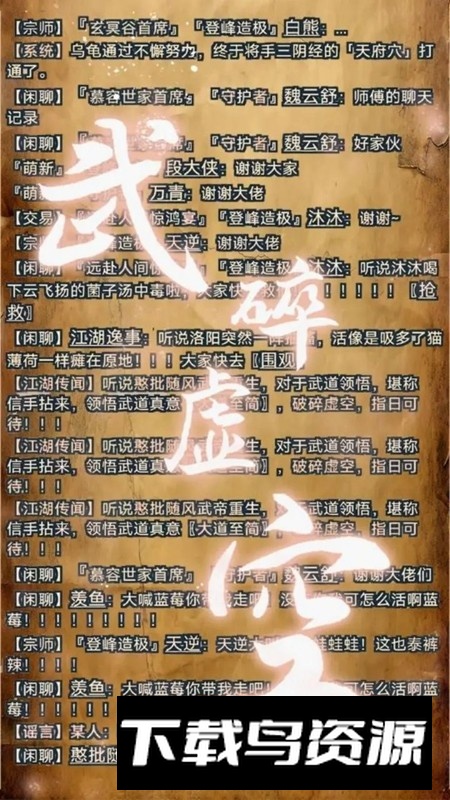 【宗师】『玄冥谷首席』『登峰造极』白熊：...
【系统】乌龟通过不懈努力，终于将手三阴经的「天府穴」打
通了。
【闲聊】『慕容世家首席』『守护者』魏云舒：师傅的聊天
记录
【闲聊】『慕 世家首席』『守护者』魏云舒：好家伙
『萌新 段大侠：谢谢大家
『萌 万青：谢谢大佬
【交易 赴人 惊鸿宴』『登峰造极』沐沐：谢谢~
【宗 峰造极』天逆：谢谢大佬
【闲聊】『远赴人间惊 』『登峰造 沐：听说沐沐喝
下云飞扬的菌子汤中毒啦，大家快 救 ！！！！！〖抢
救〗
【闲聊】江湖逸事：听说洛阳突然一 ，活像是吸多了猫
薄荷一样瘫在原地！！！大家快去〖围观
【江湖传闻】听说憨批随风武帝重生，对于武道领悟，堪称
信手拈来，领悟武道真意 至简〗，破碎虚空，指日可
待！！！
【江湖传闻】听说憨批 重生，对于武道领悟，堪称
信手拈来，领悟武道真 道至简〗，破碎虚空，指日可
待！！！
【江湖传闻】听说憨批随风武帝重生，对于武道领悟，堪称
信手拈来，领悟武道真意〖大道至简〗，破碎虚空，指日可
待！！！
【闲聊】『慕容世家首席』 守护者』魏云舒：谢谢大佬们
【闲聊】羡鱼：大喊蓝莓你带我走吧！没 你我可怎么活啊蓝
莓！！！！！！！
【宗师】『登峰造极』天逆：天逆大 蛙蛙！这也泰裤
辣！！！！！
【闲聊】羡鱼：大喊蓝莓你带我走吧！ 可怎么活啊蓝
莓！！！！！
【谣言】某人：
【闲聊】憨批随
武碎虚空
下载鸟资源